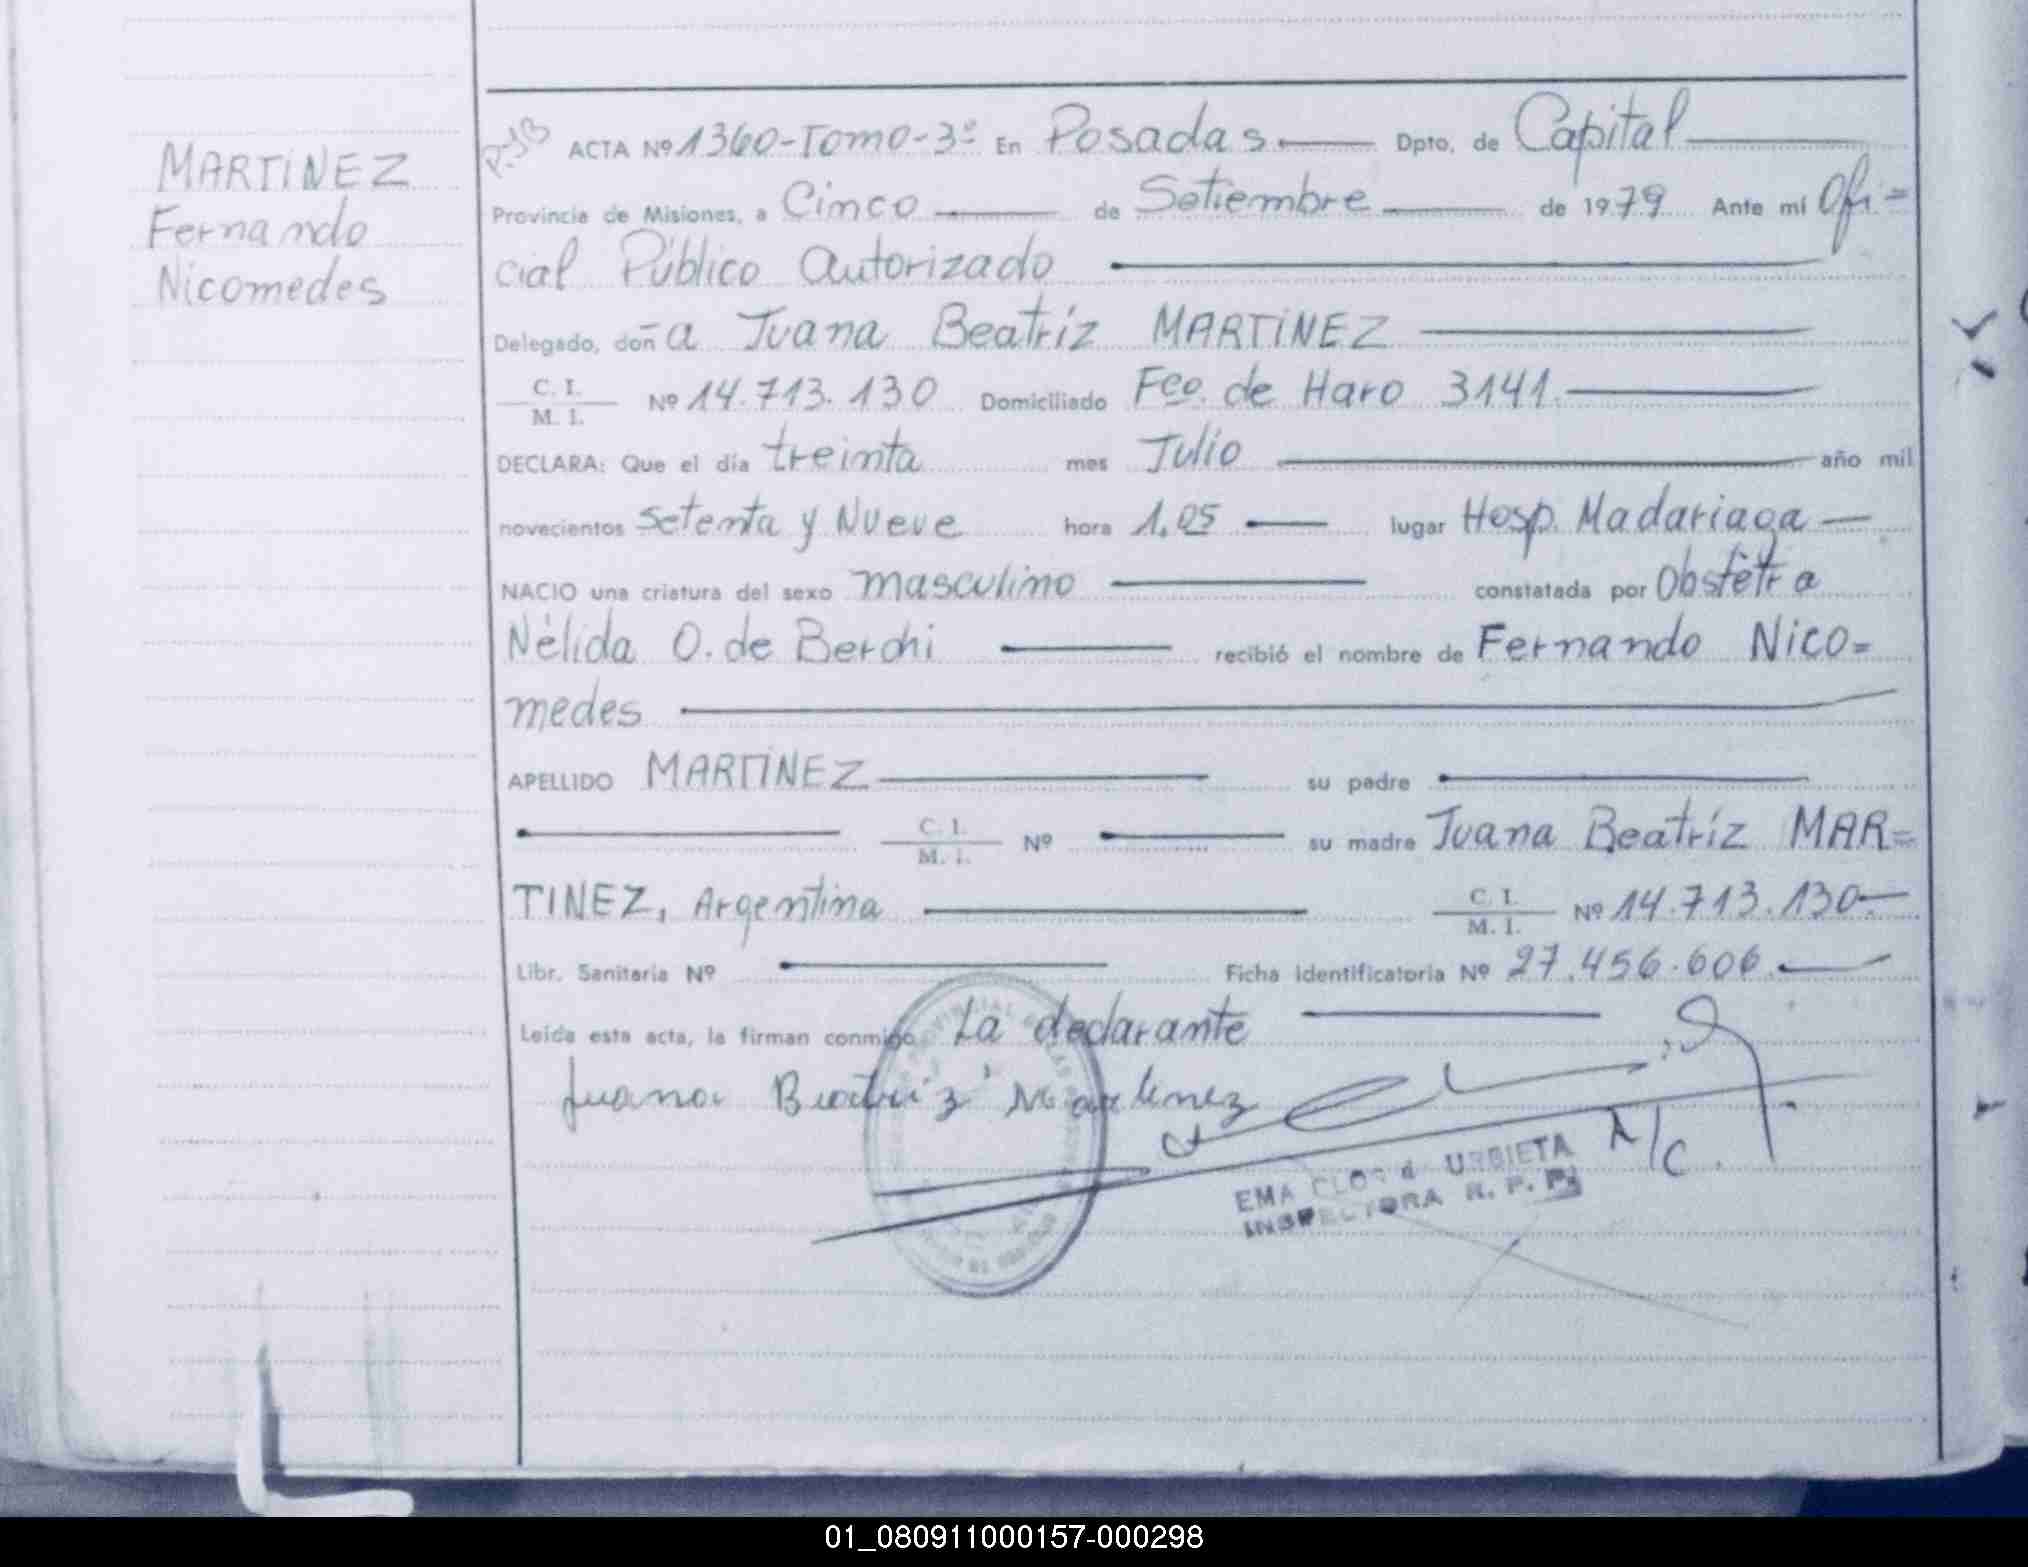 MARTINEZ
Fernando
Nicomedes
ACTA Nº 1360-Tomo-3º En Posadas Dpto, de Capital
Provincia de Misiones, a Cinco de Setiembre de 1979 Ante mí Ofi=
cial Público Autorizado
Delegado, doña Juana Beatríz MARTINEZ
C. I.
M. I. Nº 14.713.130 Domiciliado Fco. de Haro 3141.
DECLARA: Que el día treinta mes Julio año mil
novecientos setenta y Nueve hora 1,05 lugar Hosp. Madariaga
NACIO una criatura del sexo masculino constatada por Obstétra
Nélida O. de Berchi recibió el nombre de Fernando Nico=
medes
APELLIDO MARTINEZ su padre
C. I.
M. I. Nº su madre Juana Beatríz MAR=
TINEZ, Argentina C. I.
M. I. Nº 14.713.130
Libr. Sanitaria Nº Ficha identificatoria Nº 27.456.606.
Leída esta acta, la firman conmigo La declarante
Juana Beatriz Martinez
A/C.
EMA URBIETA
INSPECTORA R. P. P.
01_080911000157-000298